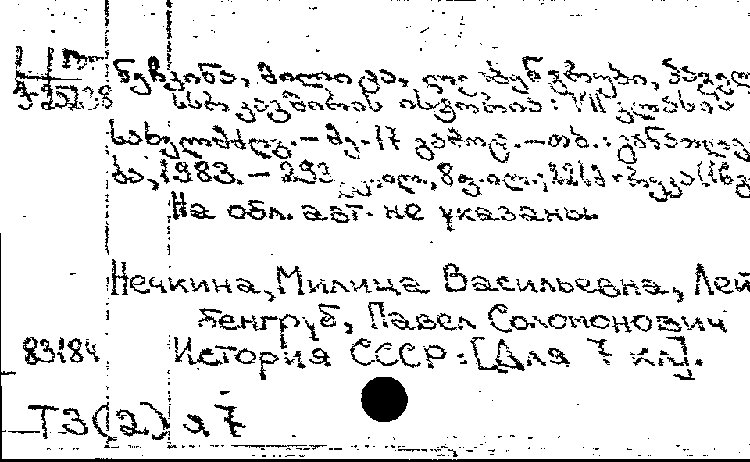 ნეჩკინა, მილიცა, ლეიბენგრუბი, პავლე
Г-25238 სსრ კავშირის ისტორია: VII კლასის
სახელმძღვ. – მე-17 გამოც. – თბ.: განათლე
ბა, 1983. – 293
На обл. авт. не указаны.
Нечкина, Милица Васильевна, Лей
бенгруб, Павел Соломонович
83184 История СССР: [Для 7 кл].
Т3(2)я7